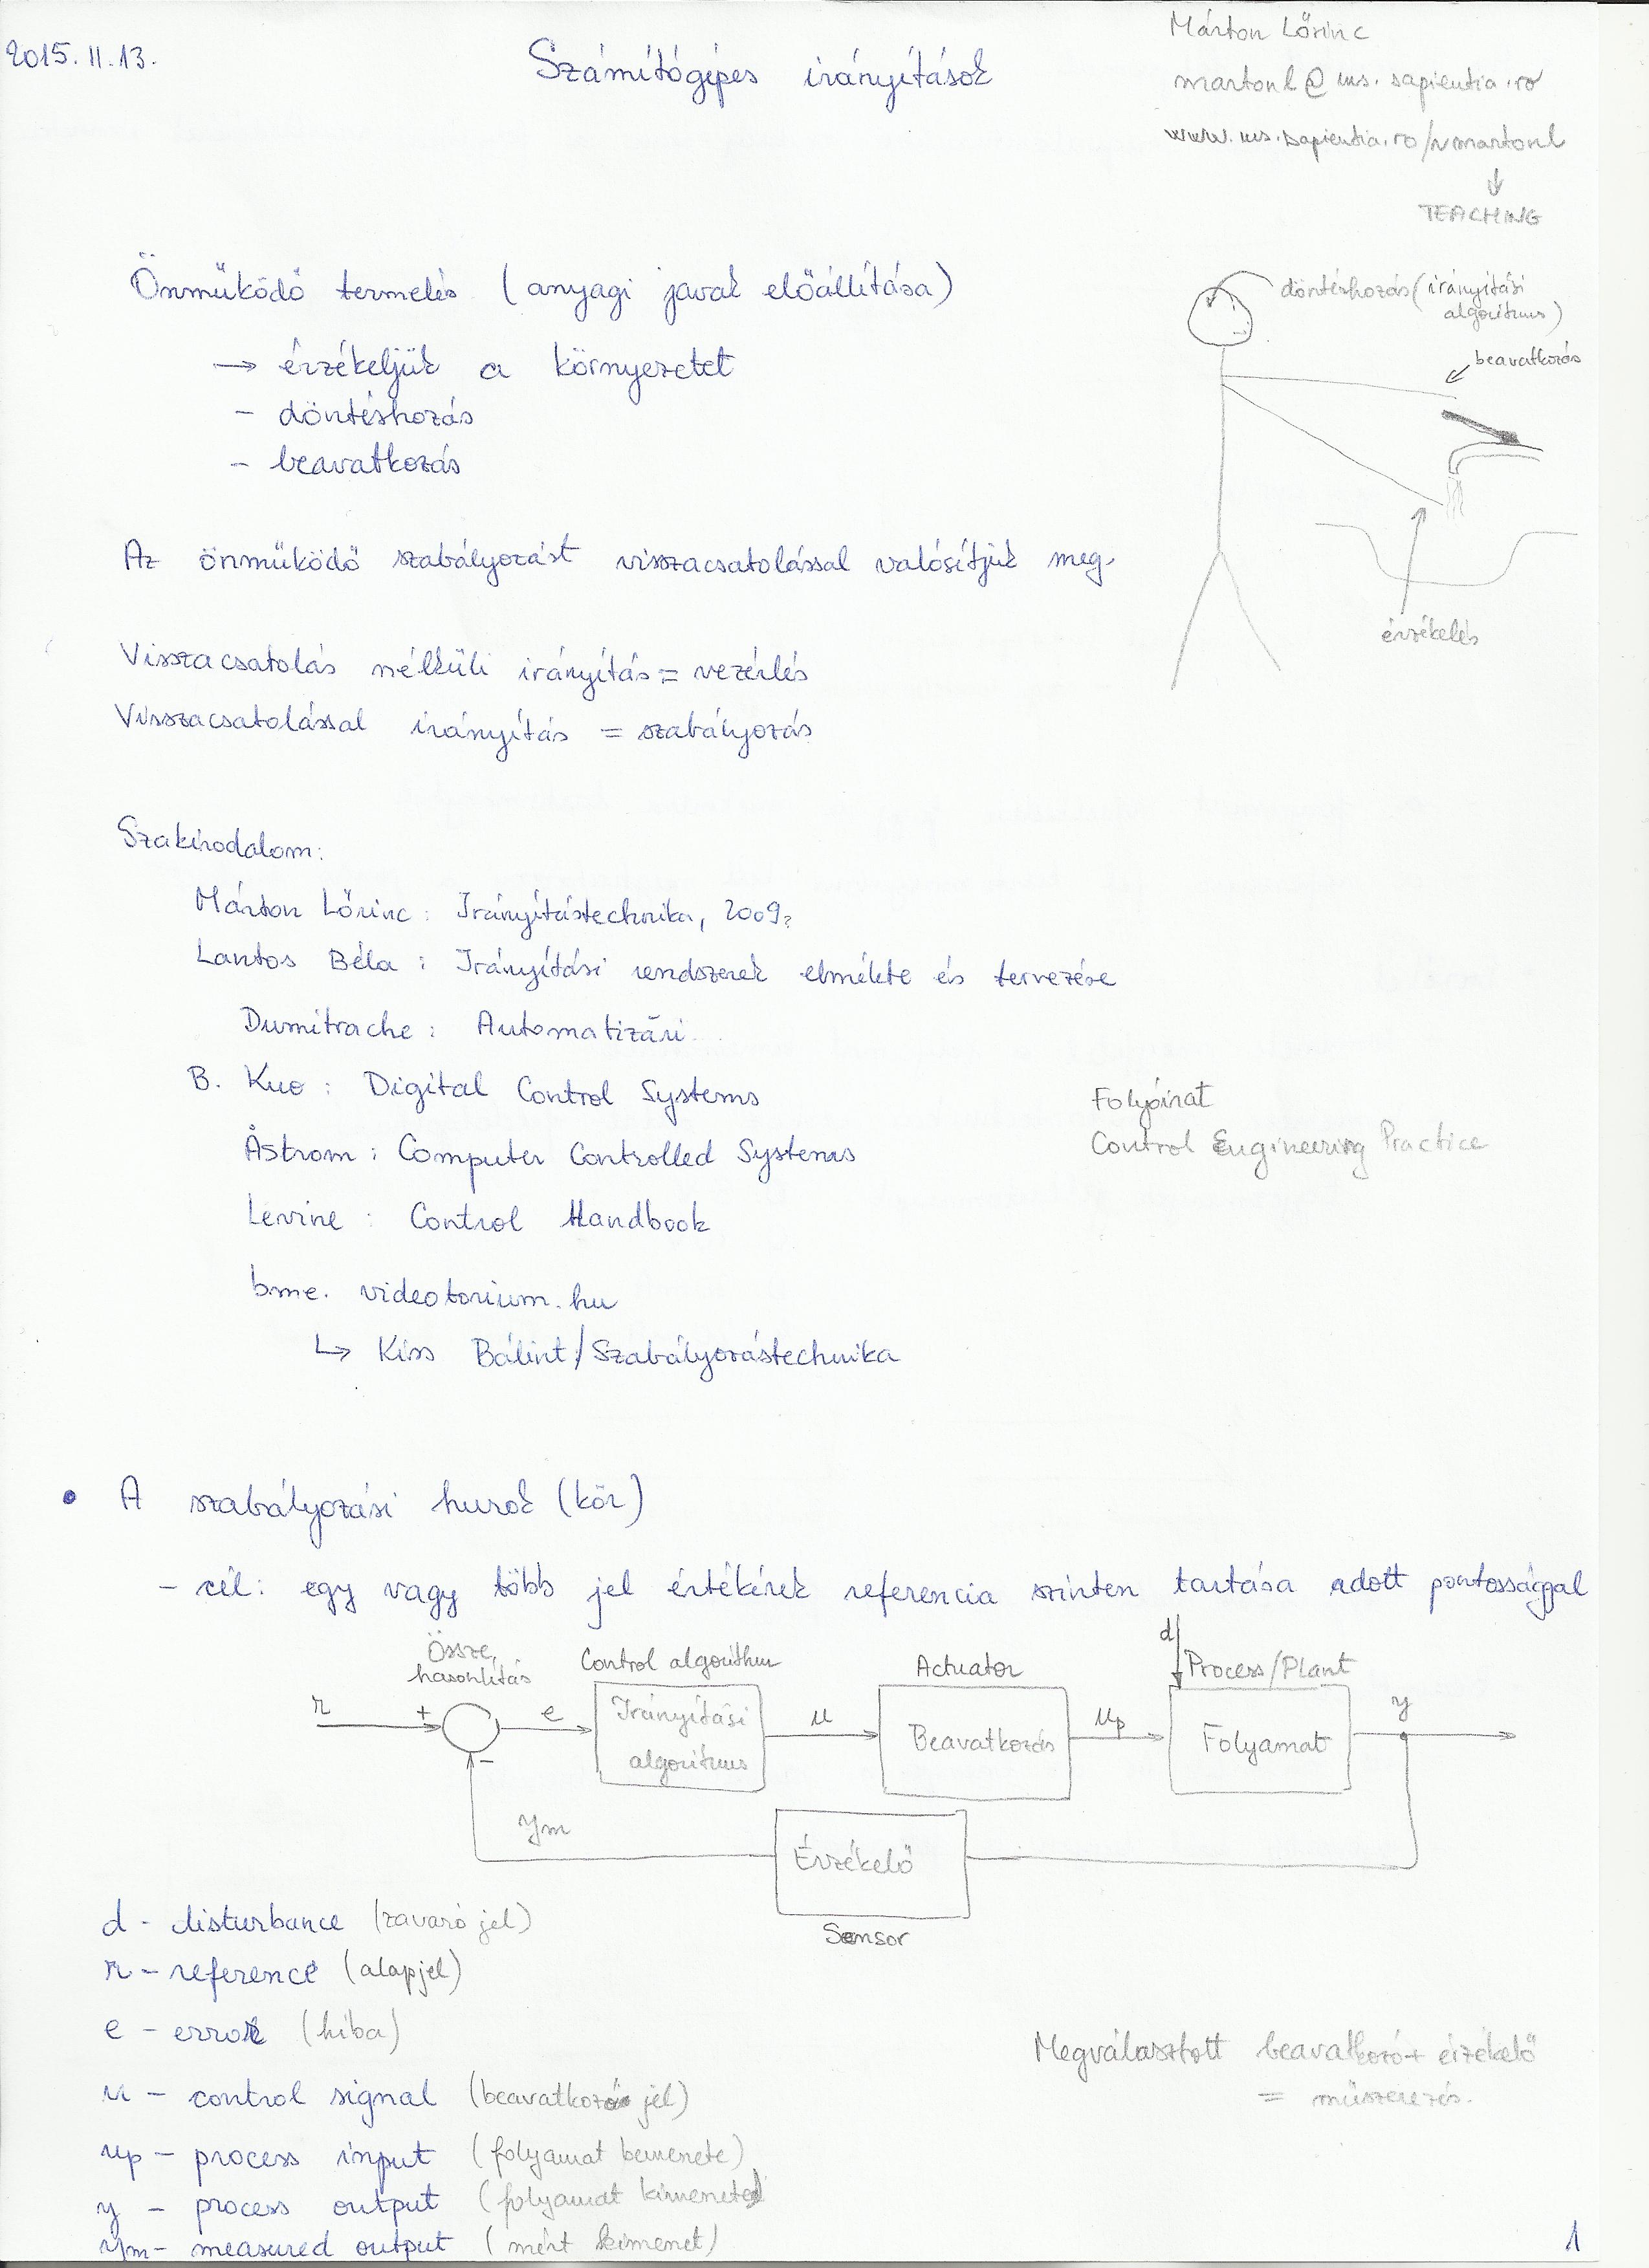 2015. 11. 13.
Számítógépes irányítások
Márton Lőrinc
martonl@ms.sapientia.ro
www.ms.sapientia.ro/~martonl
↓
TEACHING
Önműködő termelés (anyagi javak előállítása)
→ érzékeljük a környezetet
- döntéshozás
- beavatkozás
döntéshozás (irányítási
algoritmus)
beavatkozás
érzékelés
Az önműködő szabályozást visszacsatolással valósítjuk meg.
Visszacsatolás nélküli irányítás = vezérlés
Visszacsatolással irányítás = szabályozás
Szakirodalom:
Márton Lőrinc: Irányítástechnika, 2009?
Lantos Béla: Irányítási rendszerek elmélete és tervezése
Dumitrache: Automatizări
B. Kuo: Digital Control Systems
Åstrom: Computer Controlled Systems
Levine: Control Handbook
bme.videotorium.hu
↳ Kiss Bálint/Szabályozástechnika
Folyóirat
Control Engineering Practice
• A szabályozási hurok (kör)
- cél: egy vagy több jel értékének referencia szinten tartása adott pontossággal
Össze,
hasonlítás
Control algorithm
Actuator
d
Process/Plant
r
+
-
e
Irányítási
algoritmus
u
Beavatkozás
up
Folyamat
y
ym
Érzékelő
Sensor
d - disturbance (zavaró jel)
r - reference (alapjel)
e - error (hiba)
u - control signal (beavatkozó jel)
up - process input (folyamat bemenete)
y - process output (folyamat kimenete)
ym - measured output (mért kimenet)
Megválasztott beavatkozó + érzékelő
= műszerezés.
1